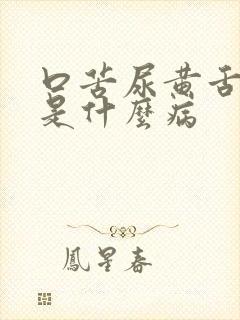 口苦尿黄舌
是什麼病
鳳星春